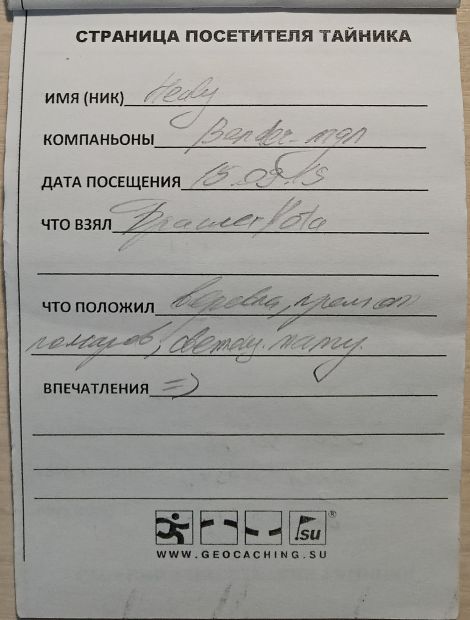 СТРАНИЦА ПОСЕТИТЕЛЯ ТАЙНИКА
ИМЯ (НИК) Hedy
КОМПАНЬОНЫ Bender-mgn
ДАТА ПОСЕЩЕНИЯ 15.09.19
ЧТО ВЗЯЛ
ЧТО ПОЛОЖИЛ веревка, крем от
комаров, светящ. палку.
ВПЕЧАТЛЕНИЯ =)
.su ®
WWW.GEOCACHING.SU